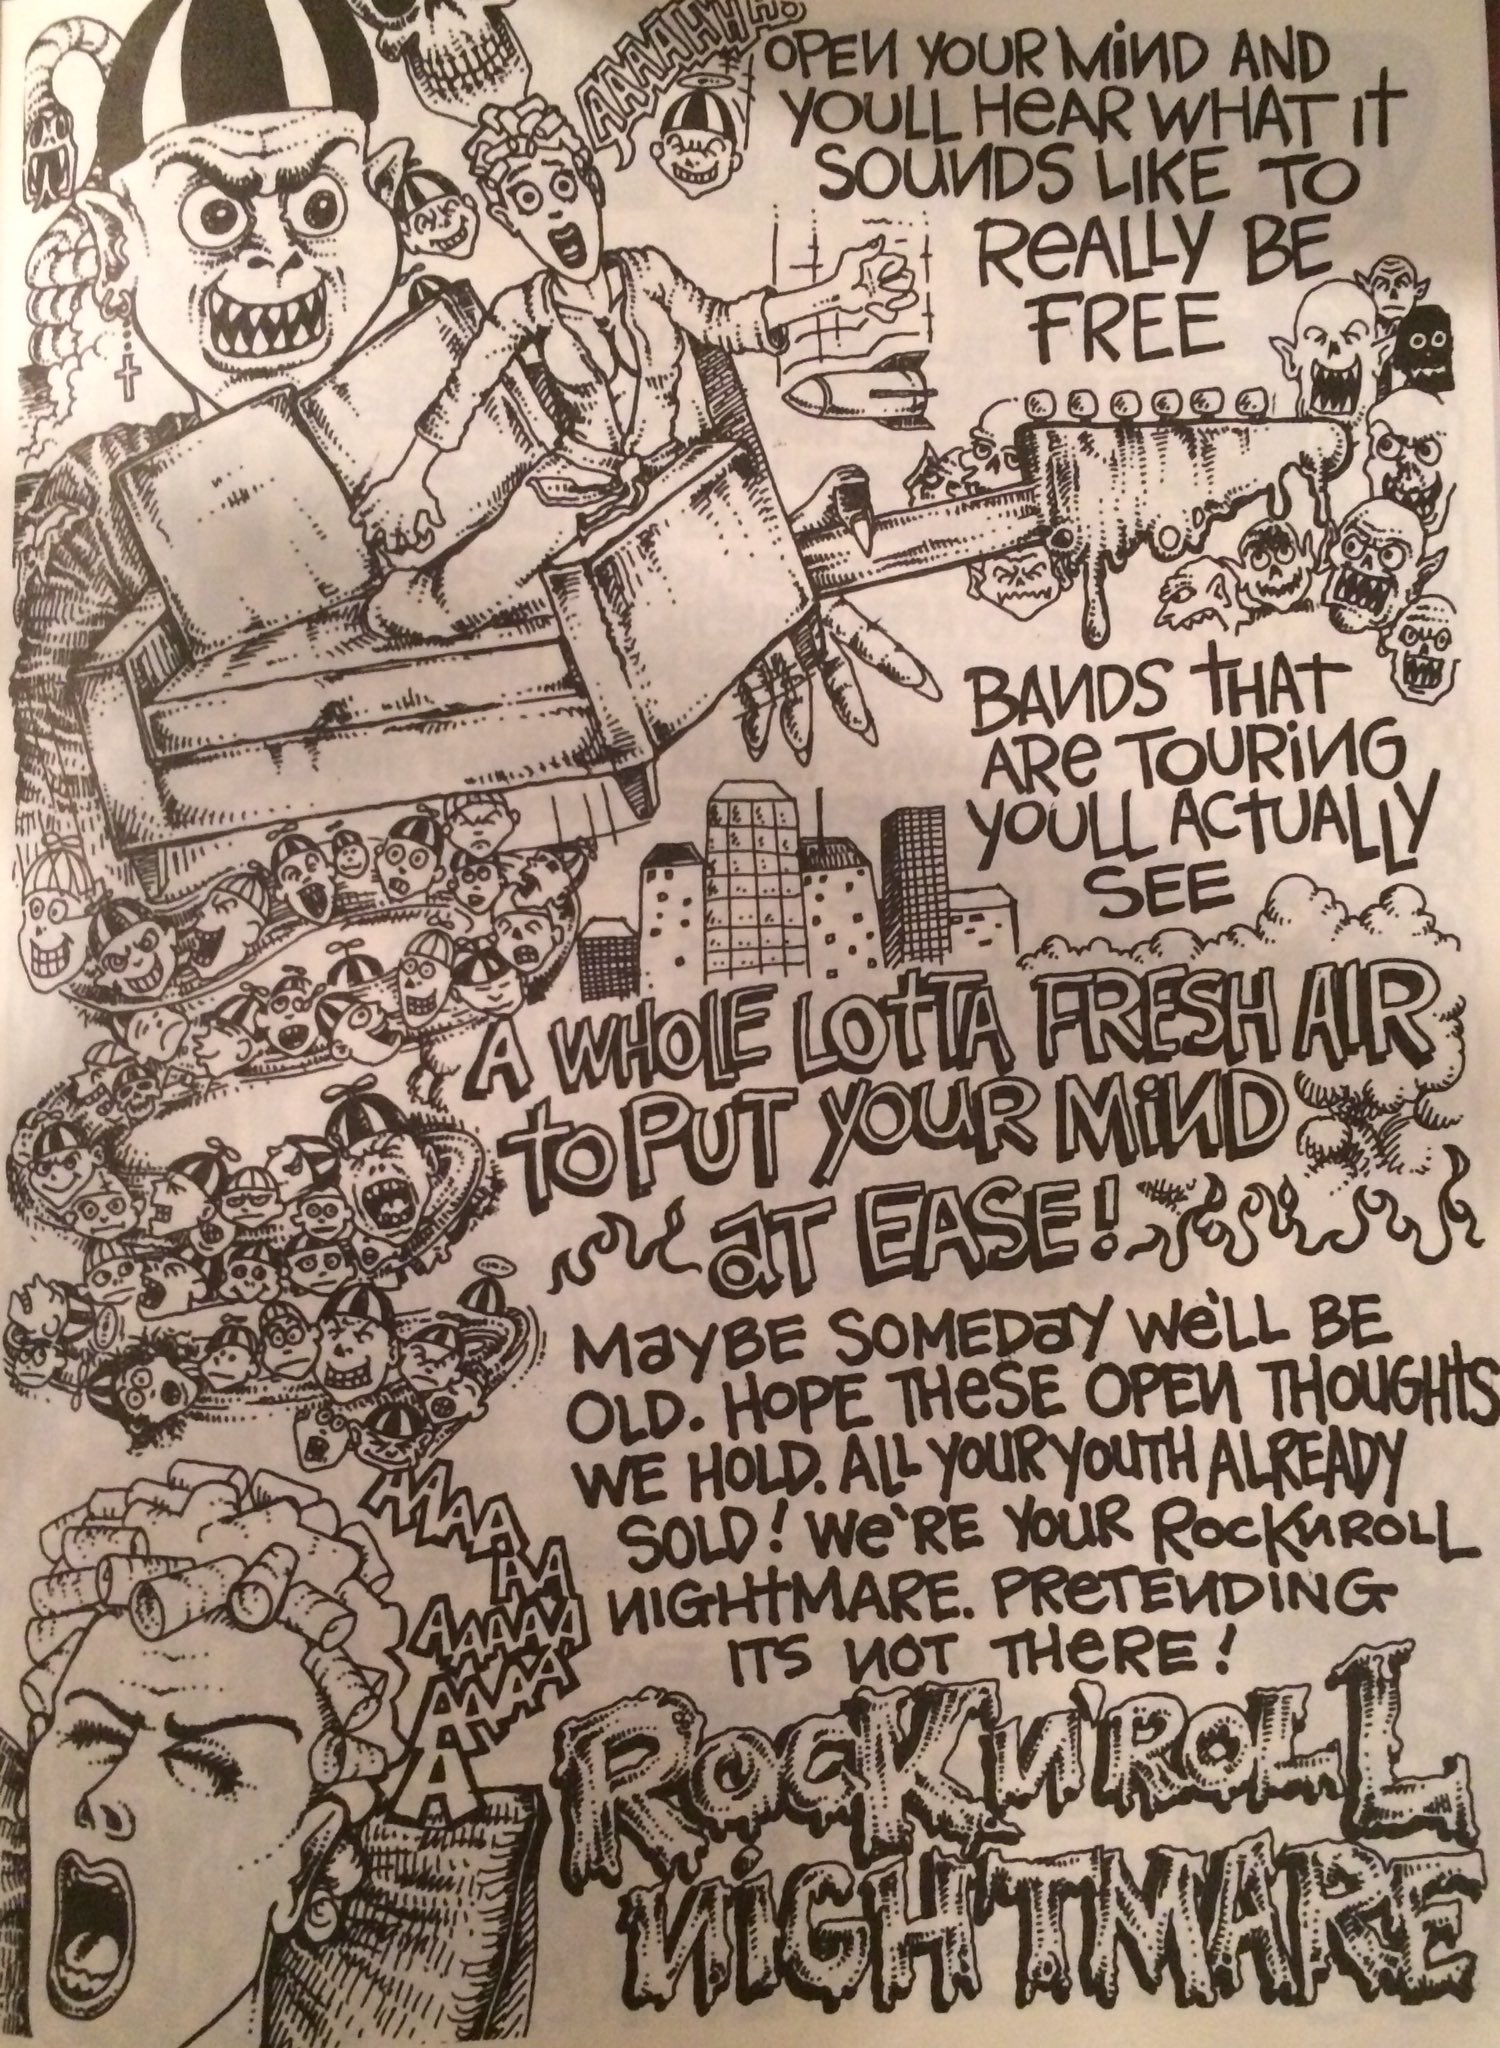 AAAAHHHHH
OPEN YOUR MIND AND
YOULL HEAR WHAT IT
SOUNDS LIKE TO
REALLY BE
FREE
BANDS THAT
ARE TOURING
YOULL ACTUALLY
SEE
A WHOLE LOTTA FRESH AIR
TO PUT YOUR MIND
AT EASE!
MAYBE SOMEDAY WE'LL BE
OLD. HOPE THESE OPEN THOUGHTS
WE HOLD. ALL YOUR YOUTH ALREADY
SOLD! WE'RE YOUR ROCKNROLL
NIGHTMARE. PRETENDING
ITS NOT THERE!
ROCK N' ROLL
NIGHTMARE